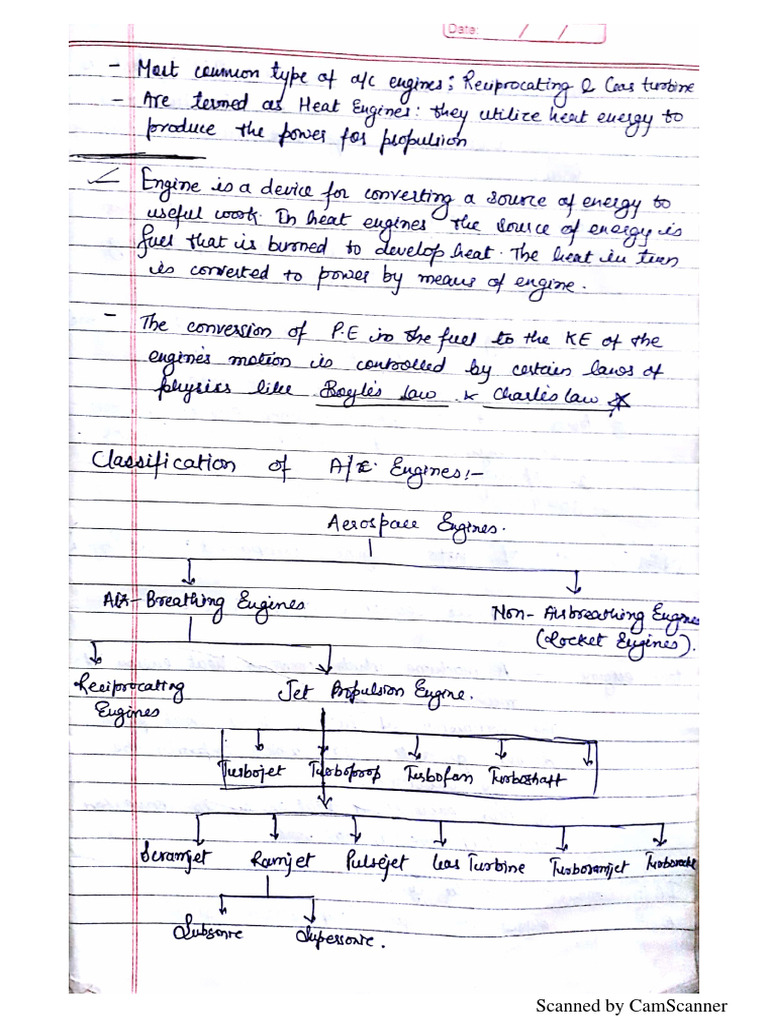 Date: / /
- Most common type of a/c engines; Reciprocating & Gas turbine
- Are termed as Heat Engines: they utilize heat energy to
produce the power for propulsion
Engine is a device for converting a source of energy to
useful work. In heat engines the source of energy is
fuel that is burned to develop heat. The heat in turn
is converted to power by means of engine.
- The conversion of P.E in the fuel to the KE of the
engine's motion is controlled by certain laws of
physics like Boyle's law & Charle's law
Classification of A/C Engines:-
Aerospace Engines.
Air-Breathing Engines
Non-Airbreathing Engine
(Rocket Engines).
Reciprocating
Engines
Jet Propulsion Engine.
Turbojet Turboprop Turbofan Turboshaft
Scramjet Ramjet Pulsejet Gas Turbine Turboramjet
Subsonic Supersonic.
Scanned by CamScanner